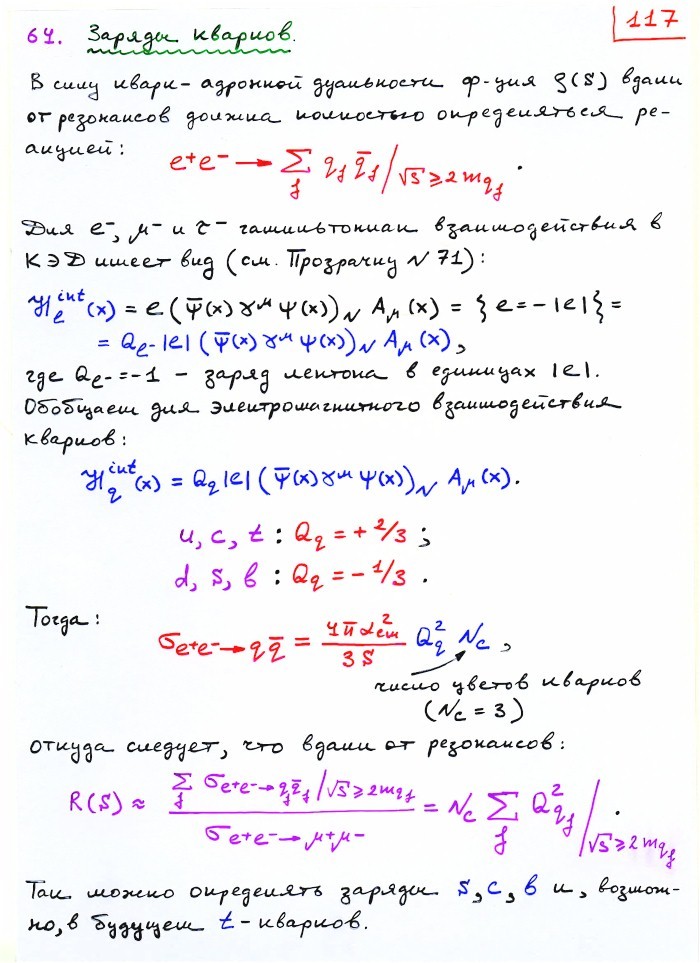 117
64. Заряды кварков.
В силу кварк-адронной дуальности ф-ция ρ(s) вдали
от резонансов должна полностью определяться ре-
акцией:
e⁺e⁻ → ∑_f q_f q̄_f /_{√s ≥ 2m_{q_f}} .
Для e⁻, μ⁻ и τ⁻ гамильтониан взаимодействия в
КЭД имеет вид (см. Прозрачку №71):
ℋ_e^{int}(x) = e (ψ̄(x) γ^μ ψ(x))_N A_μ(x) = { e = -|e| } =
= Q_{e⁻} |e| (ψ̄(x) γ^μ ψ(x))_N A_μ(x),
где Q_{e⁻} = -1 – заряд лептона в единицах |e|.
Обобщаем для электромагнитного взаимодействия
кварков:
ℋ_q^{int}(x) = Q_q |e| (ψ̄(x) γ^μ ψ(x))_N A_μ(x).
u, c, t : Q_q = + 2/3 ;
d, s, b : Q_q = - 1/3 .
Тогда:
σ_{e⁺e⁻ → q q̄} = \frac{4π α_{em}^2}{3s} Q_q^2 N_c ,
число цветов кварков
(N_c = 3)
откуда следует, что вдали от резонансов:
R(s) ≈ \frac{∑_f σ_{e⁺e⁻ → q_f q̄_f} /_{√s ≥ 2m_{q_f}}}{σ_{e⁺e⁻ → μ⁺μ⁻}} = N_c ∑_f Q_{q_f}^2 /_{√s ≥ 2m_{q_f}} .
Так можно определять заряды s, c, b и, возмож-
но, в будущем t-кварков.